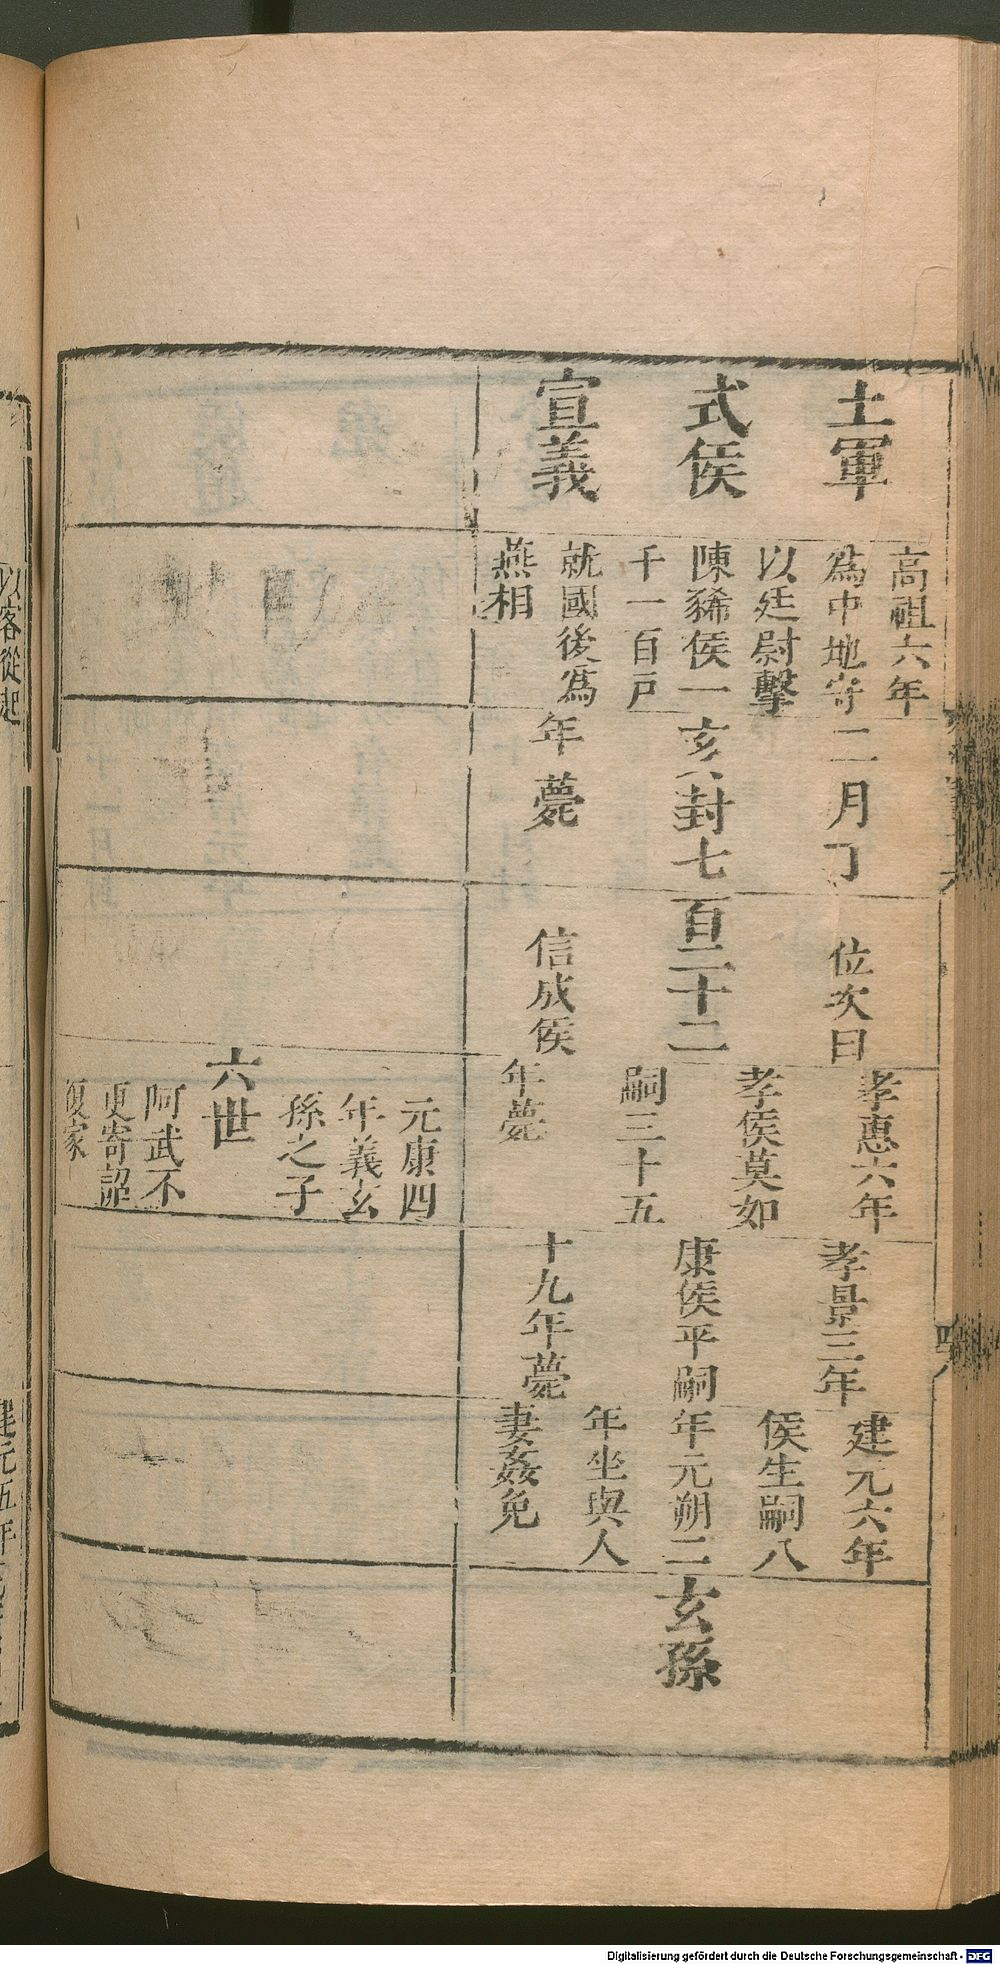 土軍
式侯
宣義
高祖六年
為中地守
以廷尉擊
陳豨侯一
千一百戸
就國後為
燕相
二月丁
亥封七
年薨
位次曰
百二十二
信成侯
孝惠六年
孝侯莫如
嗣三十五
年薨
孝景三年
康侯平嗣
十九年薨
建元六年
侯生嗣八
年元朔二
年坐與人
妻姦免
玄孫
元康四
年義玄
孫之子
六世
阿武不
更寄詔
復家
以客從起
建元五年
Digitalisierung gefördert durch die Deutsche Forschungsgemeinschaft - DFG